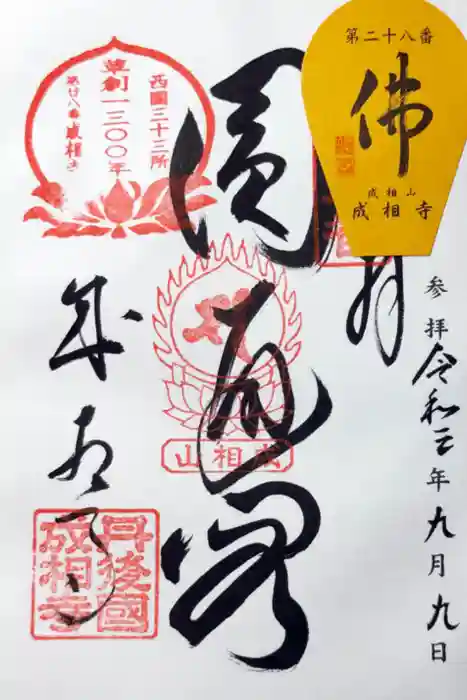 第二十八番
佛
成相山
成相寺
参拝 令和元年九月九日
西國三十三所
草創一三〇〇年
第廿八番 成相寺
圓通閣
成相山
成相寺
丹後國
成相寺